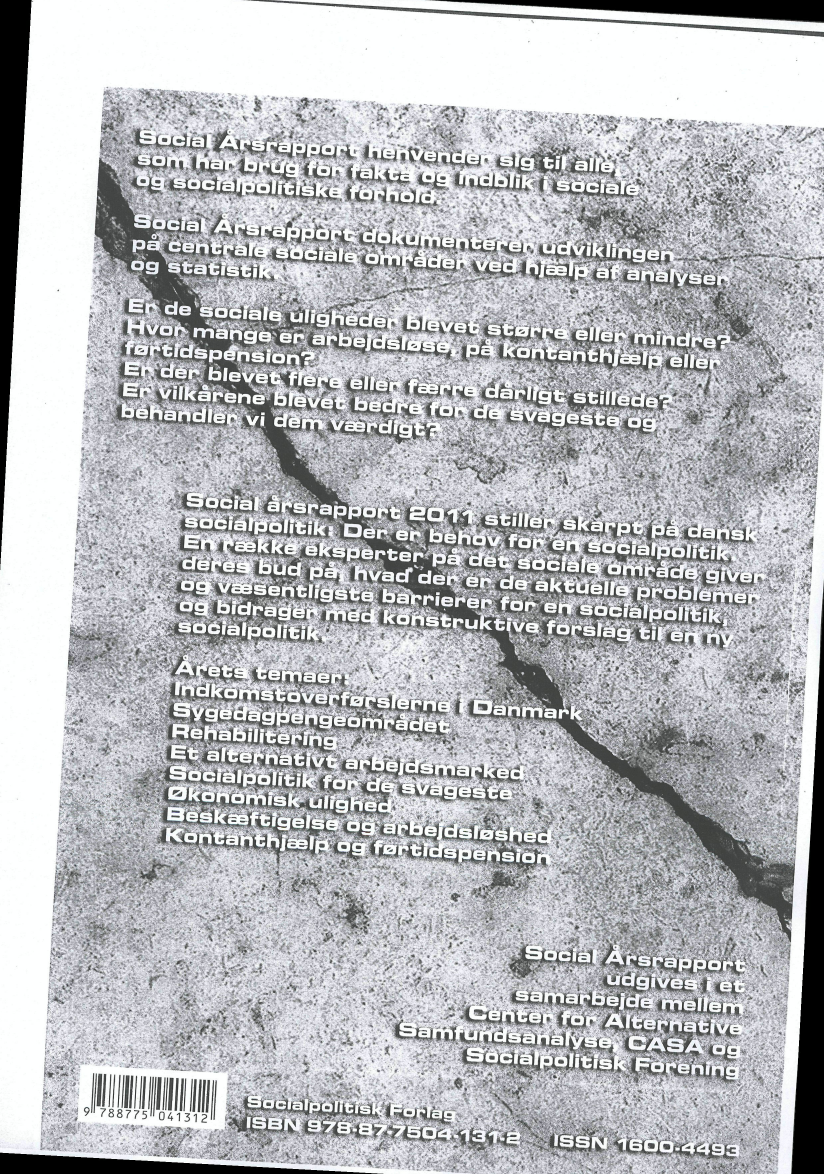 Social Årsrapport henvender sig til alle,
som har brug for fakta og indblik i sociale
og socialpolitiske forhold.
Social Årsrapport dokumenterer udviklingen
på centrale sociale områder ved hjælp af analyser
og statistik.
Er de sociale uligheder blevet større eller mindre?
Hvor mange er arbejdsløse, på kontanthjælp eller
førtidspension?
Er der blevet flere eller færre dårligt stillede?
Er vilkårene blevet bedre for de svageste og
behandler vi dem værdigt?
Social årsrapport 2011 stiller skarpt på dansk
socialpolitik: Der er behov for en socialpolitik.
En række eksperter på det sociale område giver
deres bud på, hvad der er de aktuelle problemer
og væsentligste barrierer for en socialpolitik,
og bidrager med konstruktive forslag til en ny
socialpolitik.
Årets temaer:
Indkomstoverførslerne i Danmark
Sygedagpengeområdet
Rehabilitering
Et alternativt arbejdsmarked
Socialpolitik for de svageste
Økonomisk ulighed
Beskæftigelse og arbejdsløshed
Kontanthjælp og førtidspension
Social Årsrapport
udgives i et
samarbejde mellem
Center for Alternative
Samfundsanalyse, CASA og
Socialpolitisk Forening
9 788775 041312
Socialpolitisk Forlag
ISBN 978-87-7504-131-2 ISSN 1600-4493